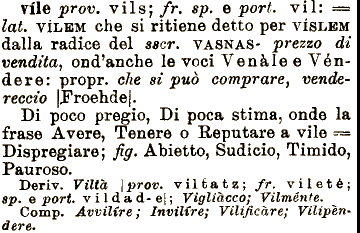 víle prov. vils; fr. sp. e port. vil: =
lat. VÍLEM che si ritiene detto per VÍSLEM
dalla radice del sscr. VASNAS- prezzo di
vendita, ond'anche le voci Venàle e Vén-
dere: propr. che si può comprare, vende-
reccio [Froehde].
Di poco pregio, Di poca stima, onde la
frase Avere, Tenere o Reputare a vile =
Dispregiare; fig. Abietto, Sudicio, Timido,
Pauroso.
Deriv. Viltà [prov. viltatz; fr. vileté;
sp. e port. vildad-e]; Vigliàcco; Vilménte.
Comp. Avvilíre; Invilíre; Vilificàre; Vilipèn-
dere.